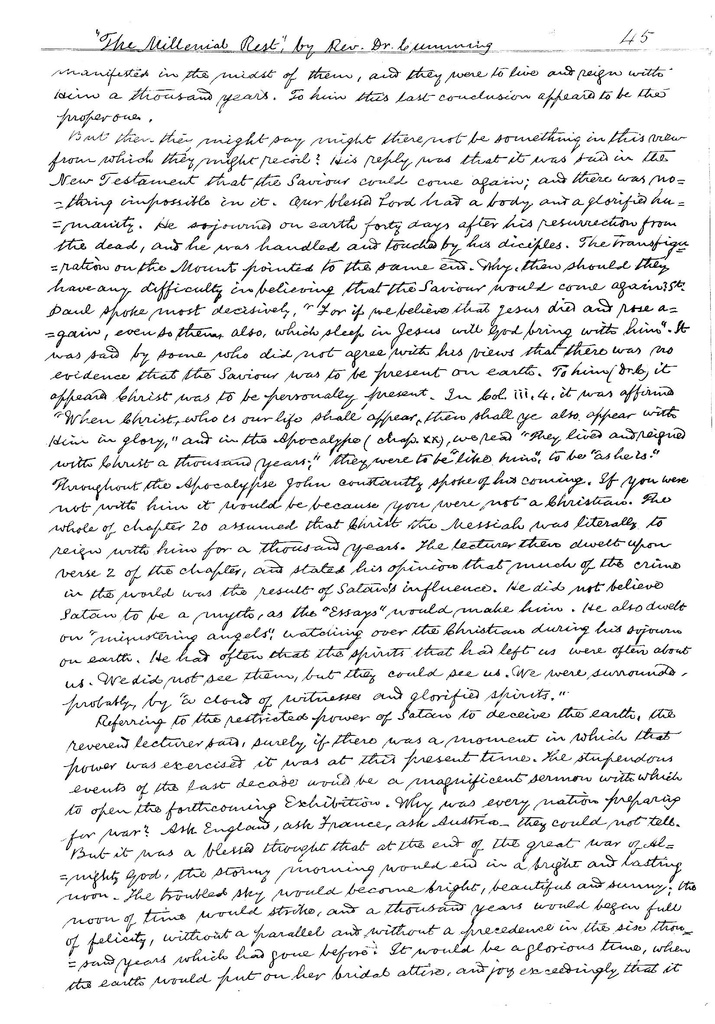 "The Millenial Rest", by Rev. Dr. Cumming 45
manifested in the midst of them, and they were to live and reign with
Him a thousand years. To him this last conclusion appeared to be the
proper one.
But then they might say might there not be something in this view
from which they might recoil? His reply was that it was said in the
New Testament that the Saviour could come again; and there was no=
=thing impossible in it. Our blessed Lord had a body and a glorified hu=
=manity. He sojourned on earth forty days after his resurrection from
the dead, and he was handled and touched by his diciples. The transfigu
=ration on the Mount pointed to the same end. Why, then should they
have any difficulty in believing that the Saviour would come again? St.
Paul spoke most decisively, "For if we believe that Jesus died and rose a=
=gain, even so them also, which sleep in Jesus will God bring with him". It
was said by some who did not agree with his views that there was no
evidence that the Saviour was to be present on earth. To him (Dr. C.) it
appeared Christ was to be personally present. In Col. iii. 4. it was affirmed
"When Christ, who is our life shall appear, then shall ye also appear with
Him in glory," and in the Apocalypse (chap. xx), we read "They lived and reigned
with Christ a thousand years;" they were to be "like him", to be "as he is."
Throughout the Apocalypse John constantly spoke of his coming. If you were
not with him it would be because you were not a Christian. The
whole of chapter 20 assumed that Christ the Messiah was literally to
reign with him for a thousand years. The lecturer then dwelt upon
verse 2 of the chapter, and stated his opinion that much of the crime
in the world was the result of Satan's influence. He did not believe
Satan to be a myth, as the "Essays" would make him. He also dwelt
on "ministering angels", watching over the Christian during his sojourn
on earth. He had often that the spirits that had left us were often about
us. We did not see them, but they could see us. We were surrounde,
probably, by "a cloud of witnesses and glorified spirits."
Referring to the restricted power of Satan to deceive the earth, the
reverend lecturer said, surely if there was a moment in which that
power was exercised it was at this present time. The stupendous
events of the last decade would be a magnificent sermon with which
to open the forthcoming Exhibition. Why was every nation preparing
for war? Ask England, ask France, ask Austria— they could not tell.
But it was a blessed thought that at the end of the great war of Al=
=mighty God, the stormy morning would end in a bright and lasting
noon. The troubled sky would become bright, beautiful and sunny; the
noon of time would strike, and a thousand years would began full
of felicity, without a parallel and without a precedence in the six thou=
=sand years which had gone before. It would be a glorious time, when
the earth would put on her bridal attire, and joy exceedingly that it